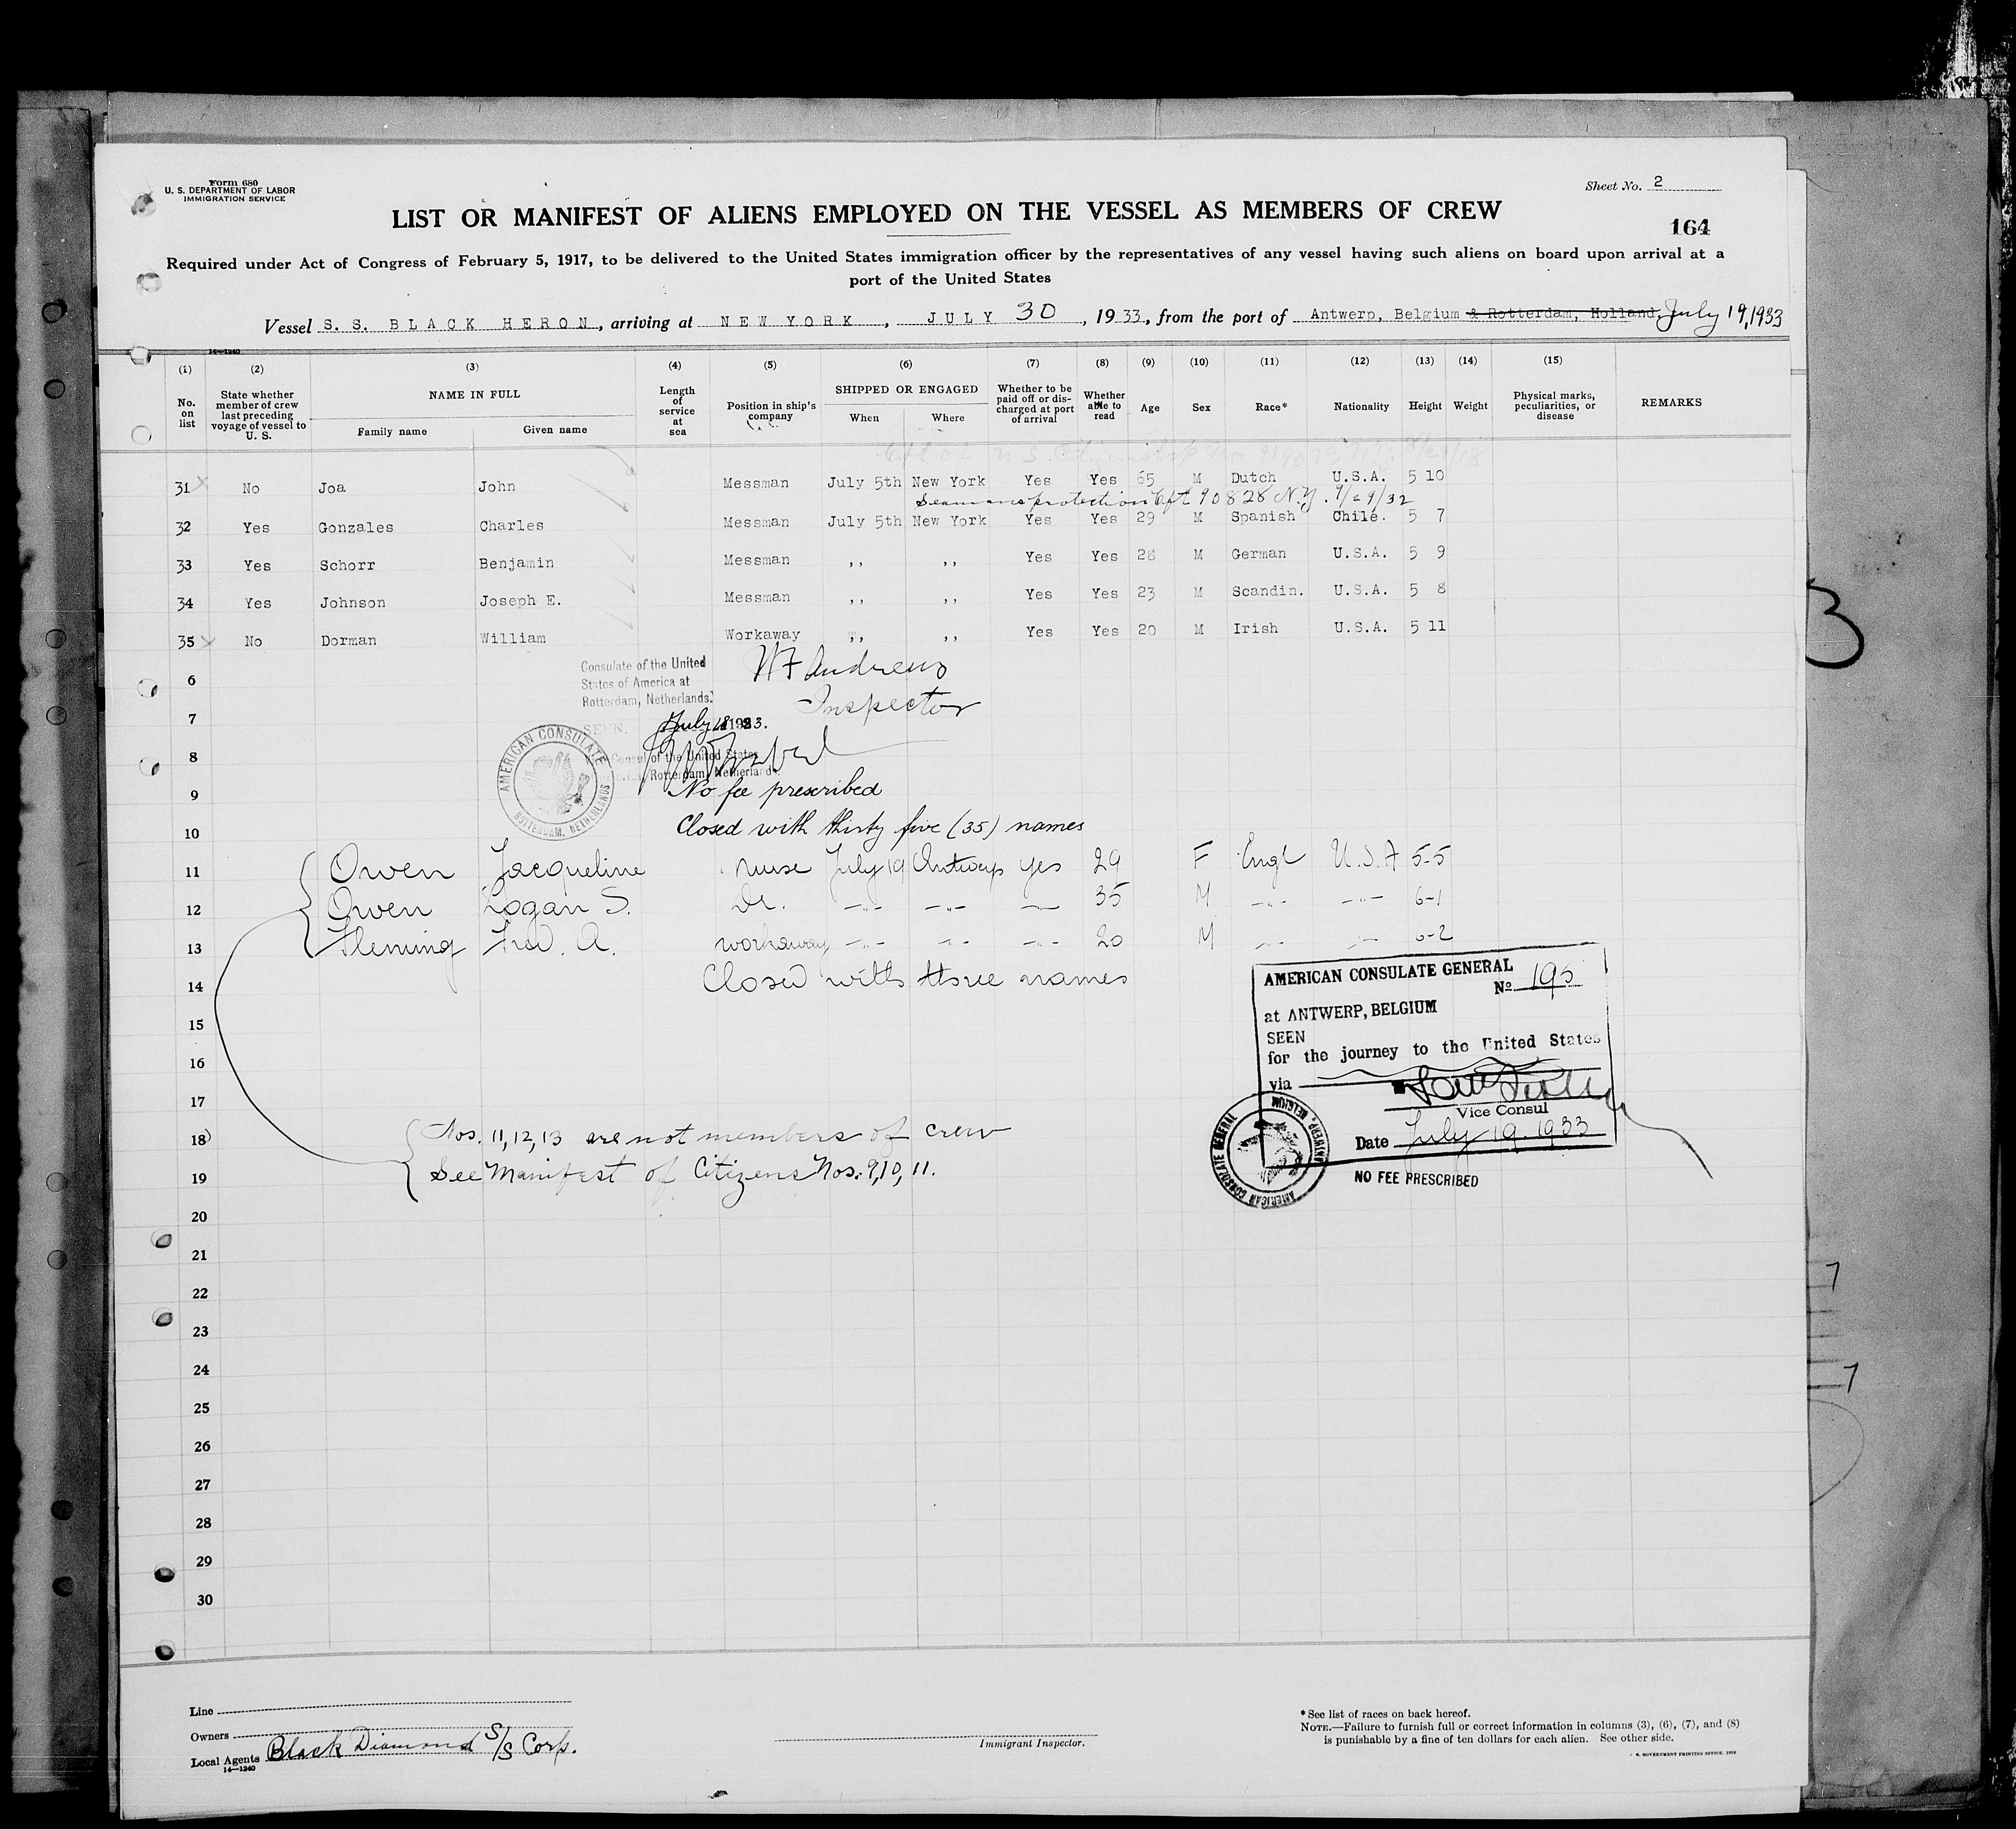 Form 680
U. S. DEPARTMENT OF LABOR
IMMIGRATION SERVICE
Sheet No. 2
LIST OR MANIFEST OF ALIENS EMPLOYED ON THE VESSEL AS MEMBERS OF CREW
164
Required under Act of Congress of February 5, 1917, to be delivered to the United States immigration officer by the representatives of any vessel having such aliens on board upon arrival at a
port of the United States
Vessel S. S. BLACK HERON, arriving at NEW YORK, JULY 30, 1933, from the port of Antwerp, Belgium & Rotterdam, Holland, July 19, 1933
14-1240
(1) (2) (3) (4) (5) (6) (7) (8) (9) (10) (11) (12) (13) (14) (15)
No. on list
State whether member of crew last preceding voyage of vessel to U. S.
NAME IN FULL
Family name
Given name
Length of service at sea
Position in ship's company
SHIPPED OR ENGAGED
When
Where
Whether to be paid off or discharged at port of arrival
Whether able to read
Age
Sex
Race*
Nationality
Height
Weight
Physical marks, peculiarities, or disease
REMARKS
of U S Citizenship No
31 No Joa John Messman July 5th New York Yes Yes 65 M Dutch U.S.A. 5 10
Seamans protection Cft 90828 N.Y. 9/29/32
32 Yes Gonzales Charles Messman July 5th New York Yes Yes 29 M Spanish Chile. 5 7
33 Yes Schorr Benjamin Messman ,, ,, Yes Yes 28 M German U.S.A. 5 9
34 Yes Johnson Joseph E. Messman ,, ,, Yes Yes 23 M Scandin. U.S.A. 5 8
35 No Dorman William Workaway ,, ,, Yes Yes 20 M Irish U.S.A. 5 11
Consulate of the United
States of America at
Rotterdam, Netherlands.
W F Andrews
Inspector
6
7
SEEN. July 18 1933.
8
Consul of the United States
Rotterdam, Netherlands
AMERICAN CONSULATE
ROTTERDAM, NETHERLANDS
9 No fee prescribed
10 Closed with thirty five (35) names
11 Owen Jacqueline nurse July 19 Antwerp yes 29 F Engl U.S.A 5-5
12 Owen Logan S. Dr. -"- -"- -"- 35 M -"- -"- 6-1
13 Fleming Fred. A. workaway -"- -"- -"- 20 M -"- -"- 6-2
14 Closed with three names
AMERICAN CONSULATE GENERAL
No 195
at ANTWERP, BELGIUM
SEEN
for the journey to the United States
via
Vice Consul
Date July 19. 1933
NO FEE PRESCRIBED
AMERICAN CONSULATE GENERAL
ANTWERP, BELGIUM
15
16
17
18 Nos. 11, 12, 13 are not members of crew
19 See Manifest of Citizens Nos. 9, 10, 11.
20
21
22
23
24
25
26
27
28
29
30
3
7
7
Line
Owners
Local Agents Black Diamond S/S Corp.
14-1240
Immigrant Inspector.
* See list of races on back hereof.
NOTE.—Failure to furnish full or correct information in columns (3), (6), (7), and (8)
is punishable by a fine of ten dollars for each alien. See other side.